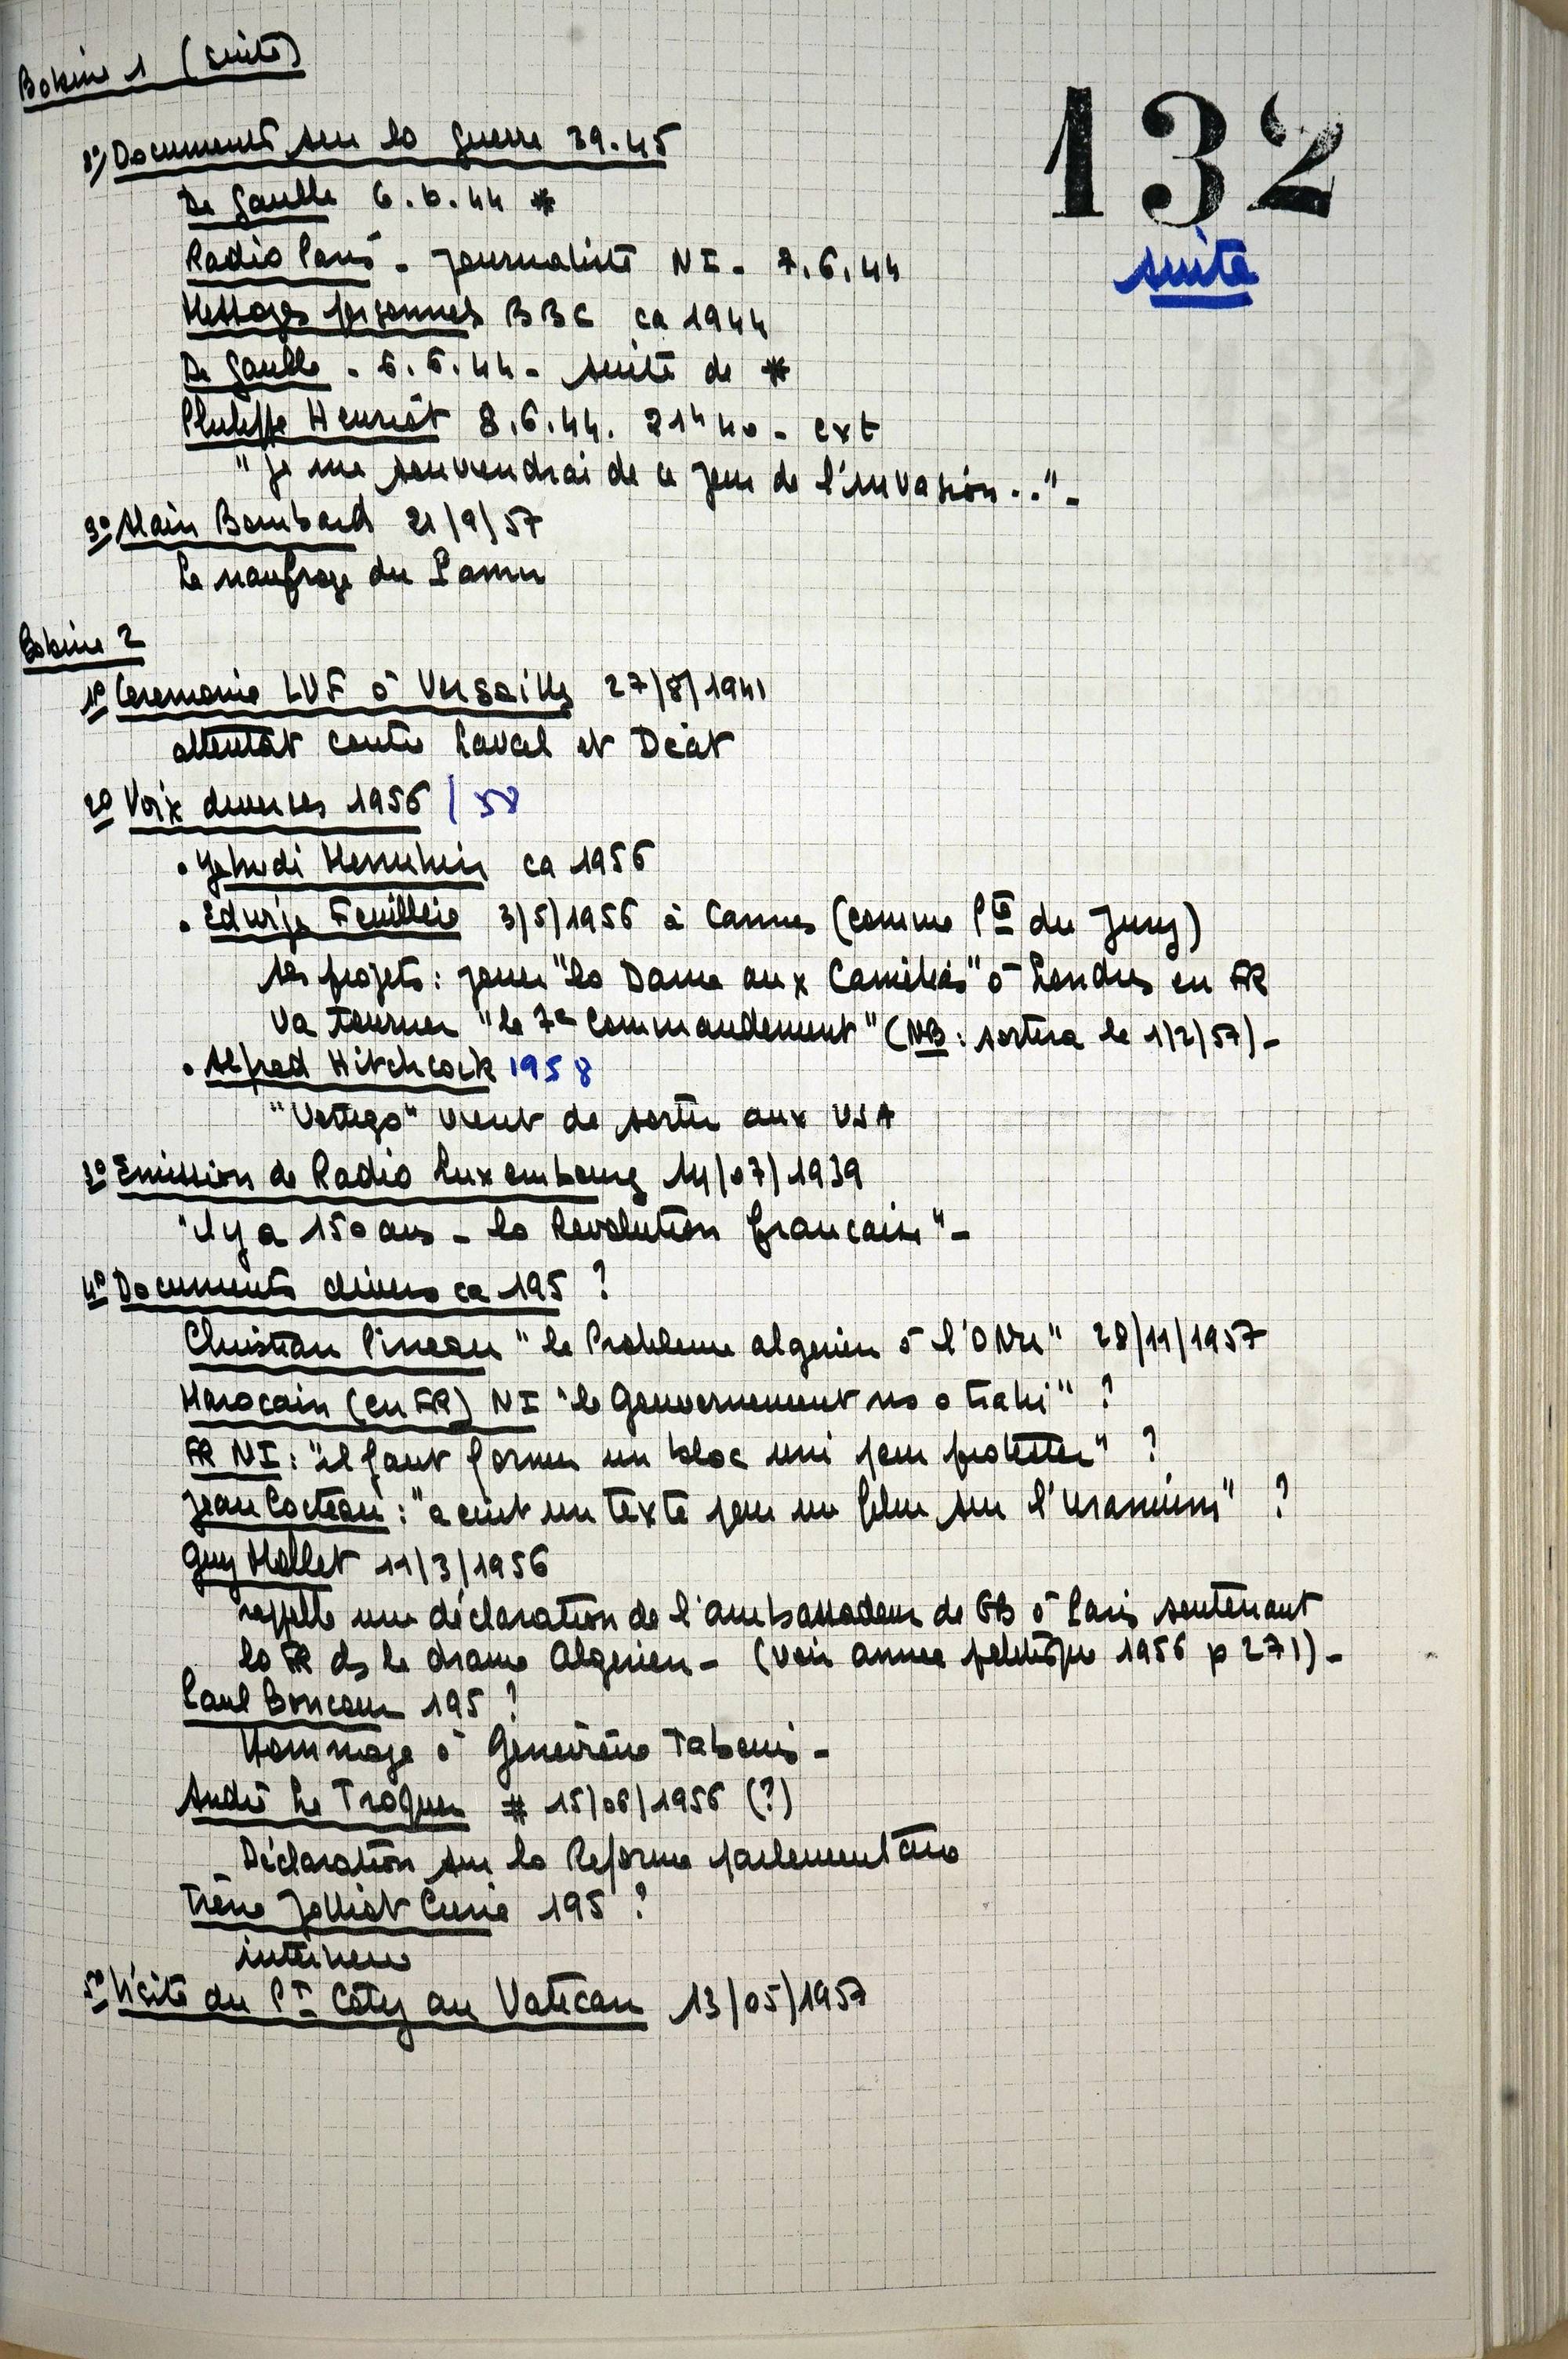 Bobine 1 (suite)
132
suite
2°/ Documents sur la guerre 39.45
De Gaulle 6.6.44 *
Radio Paris - Journaliste NI - 7.6.44
Messages personnels BBC ca 1944
De Gaulle - 6.6.44 - suite de *
Philippe Henriot 8.6.44. 21h40 - ext
"Je me souviendrai de ce jour de l'invasion.." -
3° Alain Bombard 21/9/57
Le naufrage du Pamir
Bobine 2
1° Ceremonie LVF à Versailles 27/8/1941
attentat contre Laval et Déat
2° Voix diverses 1956 / 58
• Yehudi Menuhin ca 1956
• Edwige Feuillère 3/5/1956 à Cannes (comme Pte du Jury)
ses projets: jouer "la Dame aux Camélias" à Londres en FR
Va tourner "le 7e commandement" (NB: sortira le 1/2/57) -
• Alfred Hitchcock 1958
"Vertigo" vient de sortir aux USA
3° Emission de Radio Luxembourg 14/07/1939
"il y a 150 ans - la Revolution francaise" -
4° Documents divers ca 195 ?
Christian Pineau "le Probleme algerien à l'ONU" 28/11/1957
Marocain (en FR) NI "le Gouvernement ns a trahi" ?
FR NI: "il faut former un bloc uni pour protester" ?
Jean Cocteau: "a ecrit un texte pour un film sur l'uranium" ?
Guy Mollet 11/3/1956
rappelle une déclaration de l'ambassadeur de GB à Paris soutenant
la FR ds le drame Algerien - (voir annee politique 1956 p 271) -
Paul Boncour 195 ?
Hommage à Geneviève Tabouis -
André Le Troquer # 15/06/1956 (?)
Déclaration sur la Reforme parlementaire
Irène Jolliot Curie 195 ?
interview
5° Visite du Pt Coty au Vatican 13/05/1957